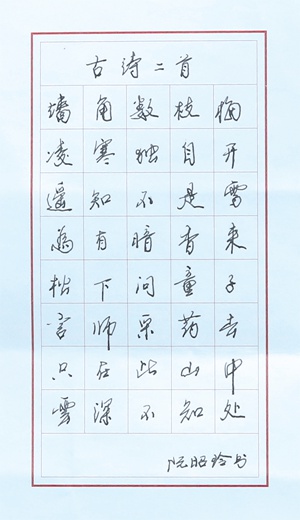 古诗二首
墙角数枝梅
凌寒独自开
遥知不是雪
為有暗香来
松下问童子
言师采药去
只在此山中
雲深不知处
阮昭玲书